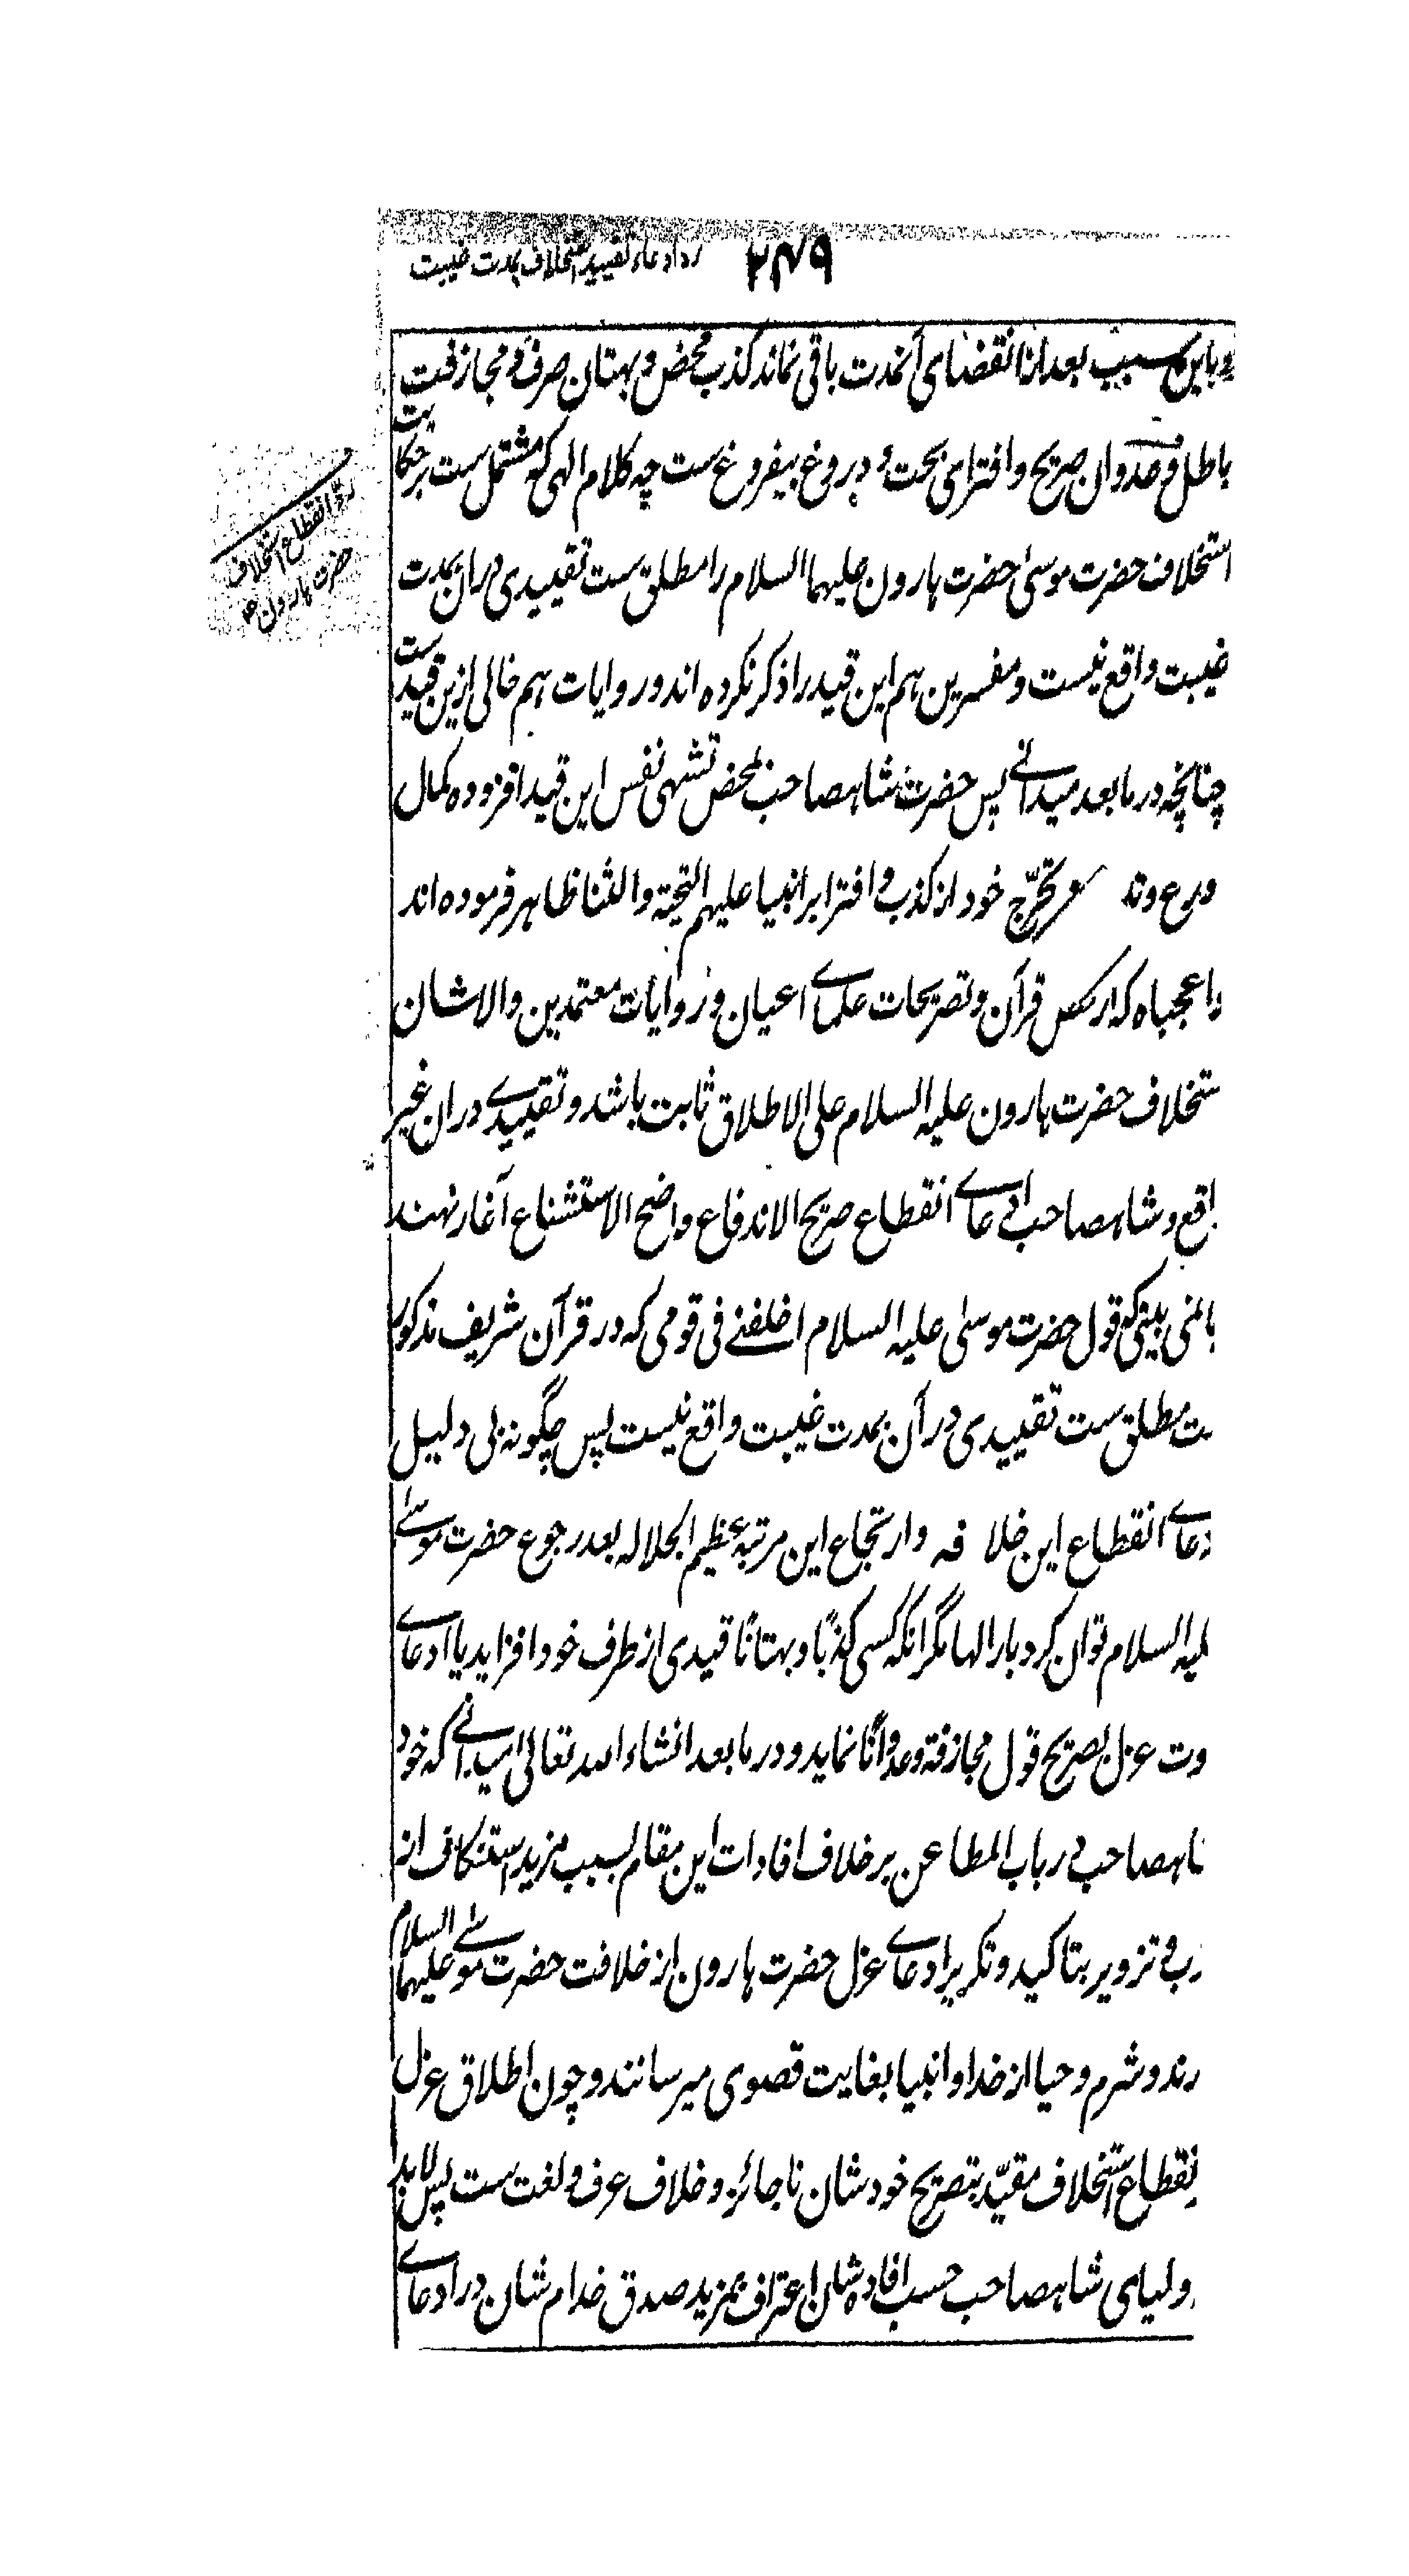 ۲۴۹ رد ادعاء تقیید استخلاف بمدت غیبت
وباین سبب بعد از انقضای آنمدت باقی نماند کذب محض و بهتان صرف و مجازفت
باطل و عدوان صریح و افترای بحت و دروغ بیفروغ ست چه کلام الهی کو مشتمل ست بر حکایت
استخلاف حضرت موسیٰ حضرت هارون علیهما السلام را مطلق ست تقییدی دران بمدت
غیبت واقع نیست و مفسرین هم این قید را ذکر نکرده اند و روایات هم خالی ازین قید ست
چنانچه در ما بعد میدانی پس حضرت شاهصاحب بمحض تشهی نفس این قید افزوده کمال
ورع و تحرّج خود از کذب و افترا بر انبیا علیهم التحیة والثنا ظاهر فرموده اند
واعجباه که از نص قرآن و تصریحات علمای اعیان و روایات معتمدین والاشان
ستخلاف حضرت هارون علیه السلام علی الاطلاق ثابت باشد و تقییدی دران غیر
اقع و شاهصاحب ادعای انقطاع صریح الاندفاع واضح الاستشناع آغاز نهند
بینی که قول حضرت موسیٰ علیه السلام اخلفنی فی قومی که در قرآن شریف مذکور
ست مطلق ست تقییدی در آن بمدت غیبت واقع نیست پس چگونه بی دلیل
دعای انقطاع این خلافه وارتجاع این مرتبۂ عظیم الجلاله بعد رجوع حضرت موسیٰ
لیه السلام توان کرد بار الها مگر انکه کسی کذبًا و بهتانًا قیدی از طرف خود افزاید یا ادعای
وت عزل بصریح قول مجازفة وعدوانًا نماید و در ما بعد انشاء الله تعالیٰ میدانی که خود
ناهصاحب در باب المطاعن بر خلاف افادات این مقام بسبب مزید استنکاف از
ذب و تزویر بتاکید و تکریر ادعای عزل حضرت هارون از خلافت حضرت موسیٰ علیهما السلام
رند و شرم و حیا از خدا و انبیا بغایت قصوی میرسانند و چون اطلاق عزل
نقطاع استخلاف مقیّد بتصریح خود شان ناجائز و خلاف عرف و لغت ست پس لابد
ولیای شاهصاحب حسب افاده شان اعتراف بمزید صدق خدام شان در ادعای
رد انقطاع استخلاف
حضرت هارون ع